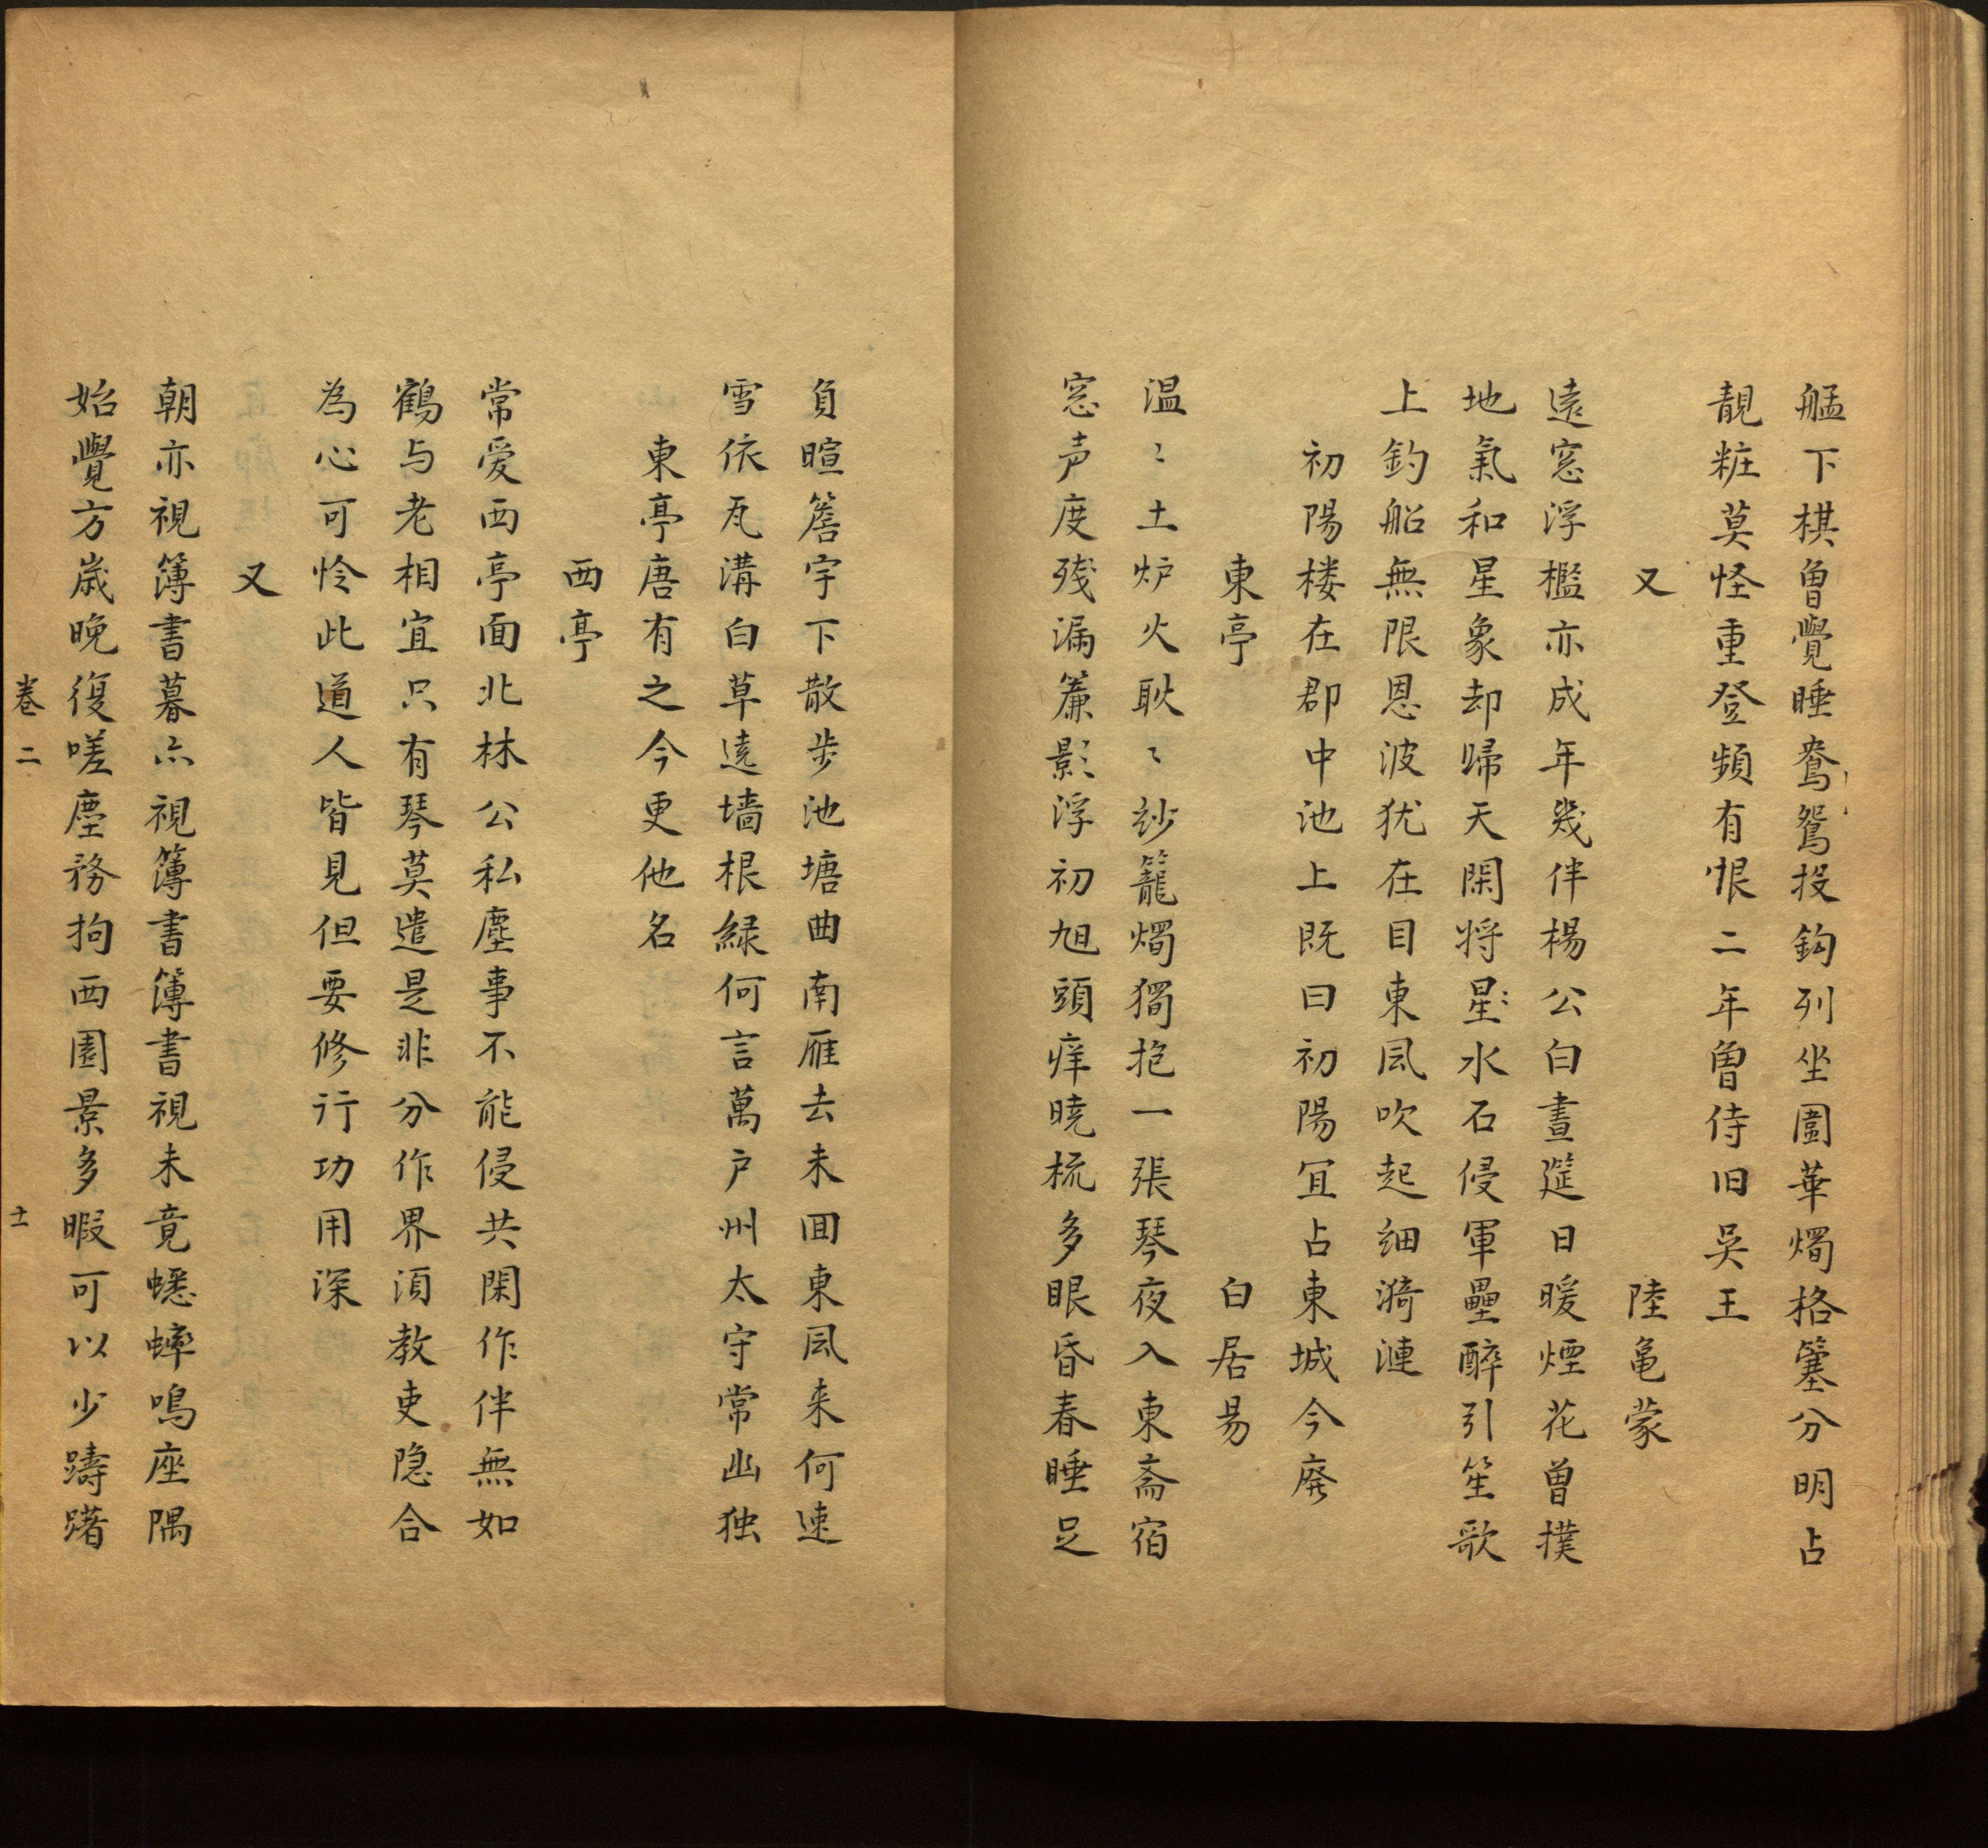 艋下棋曽覺睡鴦鴛投鈎列坐圍華燭格簺分明占
靚粧莫怪重登頻有恨二年曽侍旧吴王
又　陸亀蒙
遶窓浮檻亦成年幾伴楊公白晝筵日暖煙花曽撲
地氣和星象却歸天閑将星〻水石侵軍壘醉引笙歌
上釣船無限恩波犹在目東風吹起细漪漣
初陽楼在郡中池上既曰初陽宜占東城今廃
東亭　白居易
温〻土炉火耿〻紗籠燭獨抱一張琴夜入東斎宿
窓声度残漏簾影浮初旭頭痒曉梳多眼昏春睡足
負暄簷宇下散步池塘曲南雁去未囬東風来何速
雪依瓦溝白草遶墙根緑何言萬户州太守常幽独
東亭唐有之今更他名
西亭
常爱西亭面北林公私塵事不能侵共閑作伴無如
鶴与老相宜只有琴莫遣是非分作界湏教吏隐合
為心可怜此道人皆見但要修行功用深
又
朝亦視簿書暮亦視簿書簿書視未竟蟋蟀鳴座隅
始覺方歳晚復嗟塵務拘西園景多暇可以少躊躇
卷二　十一